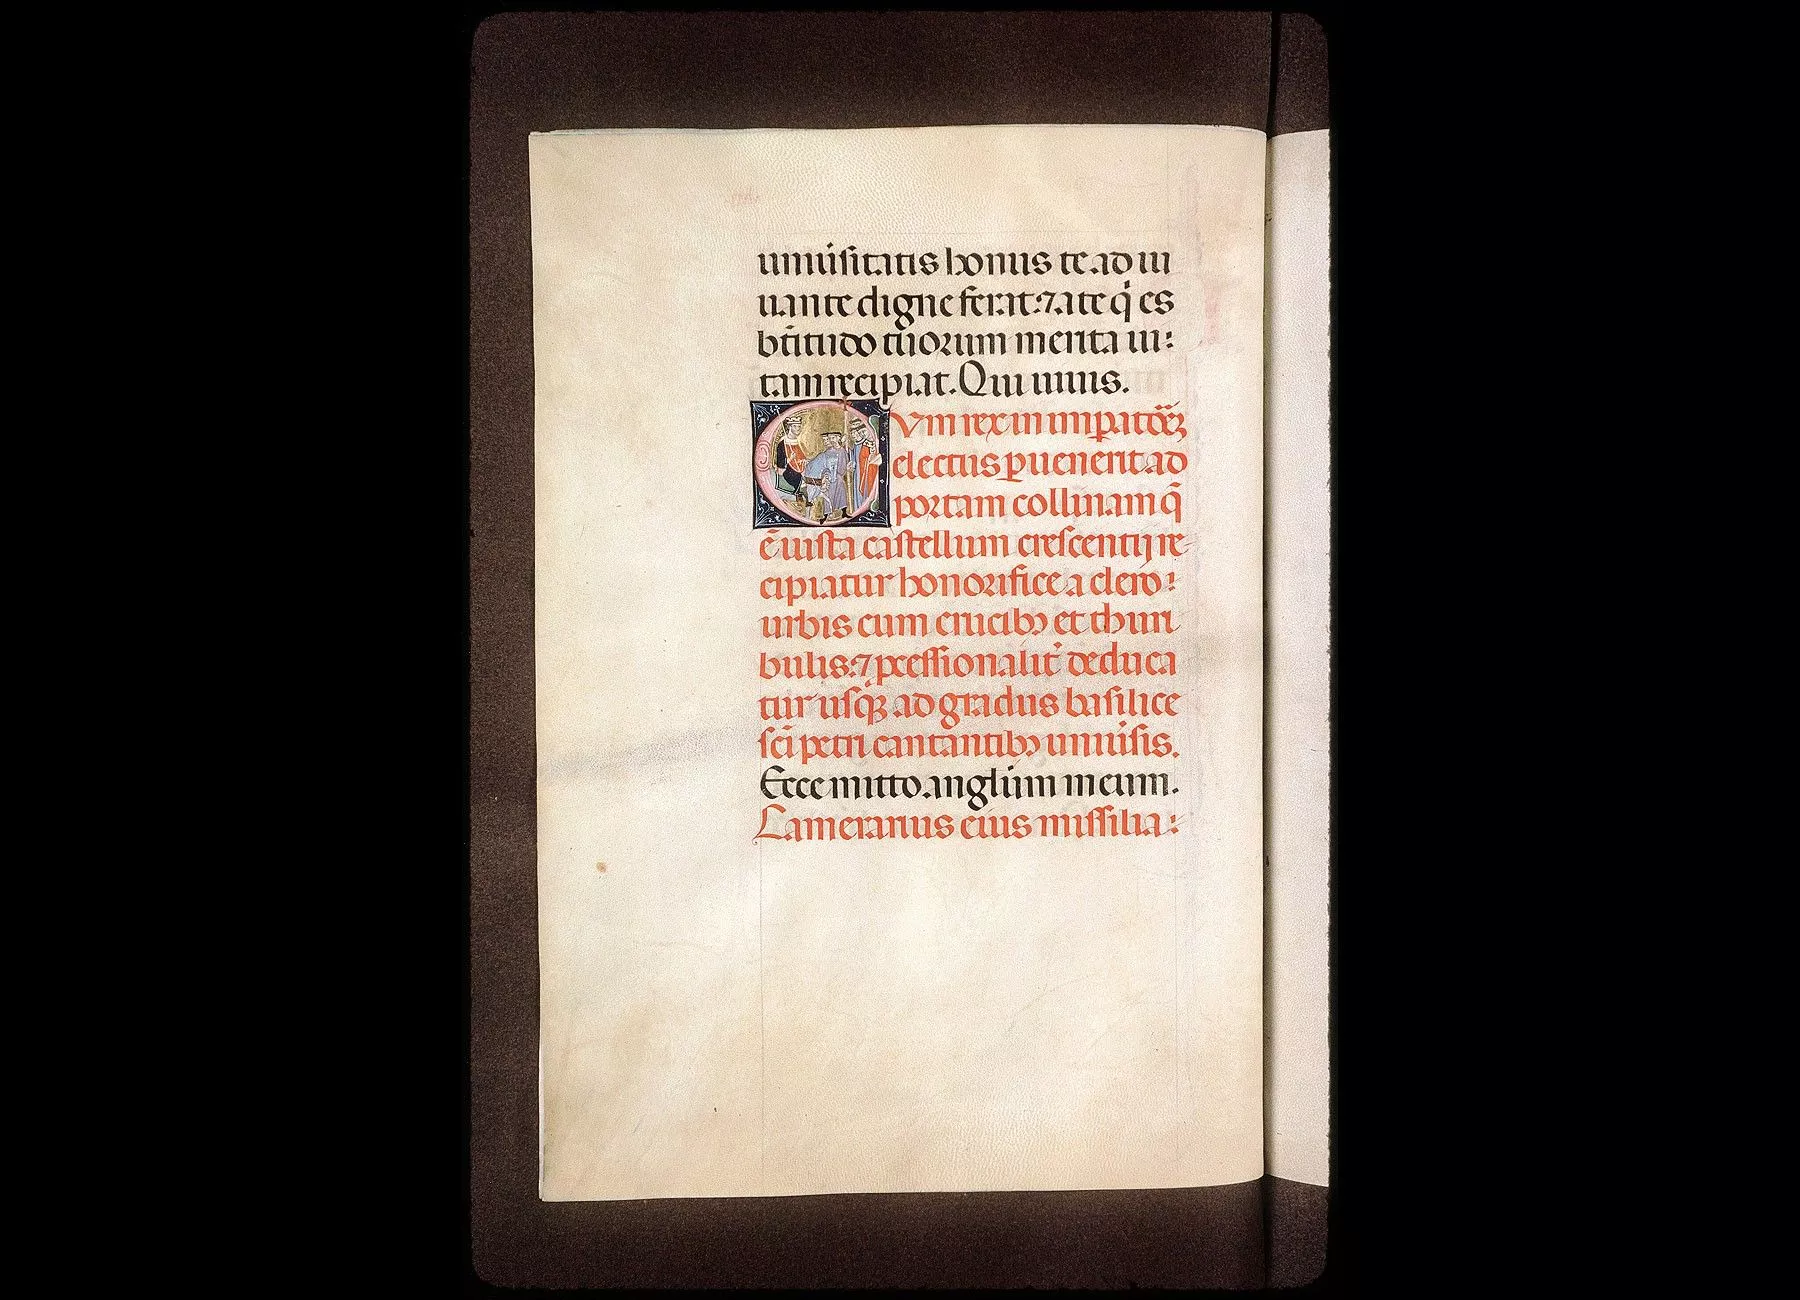 uniũsitatis honus te ad iu
uante digne ferat: ⁊ a te q̇ es
bt̃itudo tuorum merita ui:
tam recipiat. Qui uiuis.
Cum rex in imp̲atorẽꝫ
electus p̲uenerit ad
portam collinam q̃
ẽ iuxta castellum crescentij re-
cipiatur honorifice a clero:
urbis cum crucibꝫ et thuri
bulis: ⁊ ꝓcessionalit̉ deduca
tur usqꝫ ad gradus basilice
sc̃i petri cantantibꝫ uniũsis.
Ecce mitto anglũm meum.
Camerarius eius missilia: